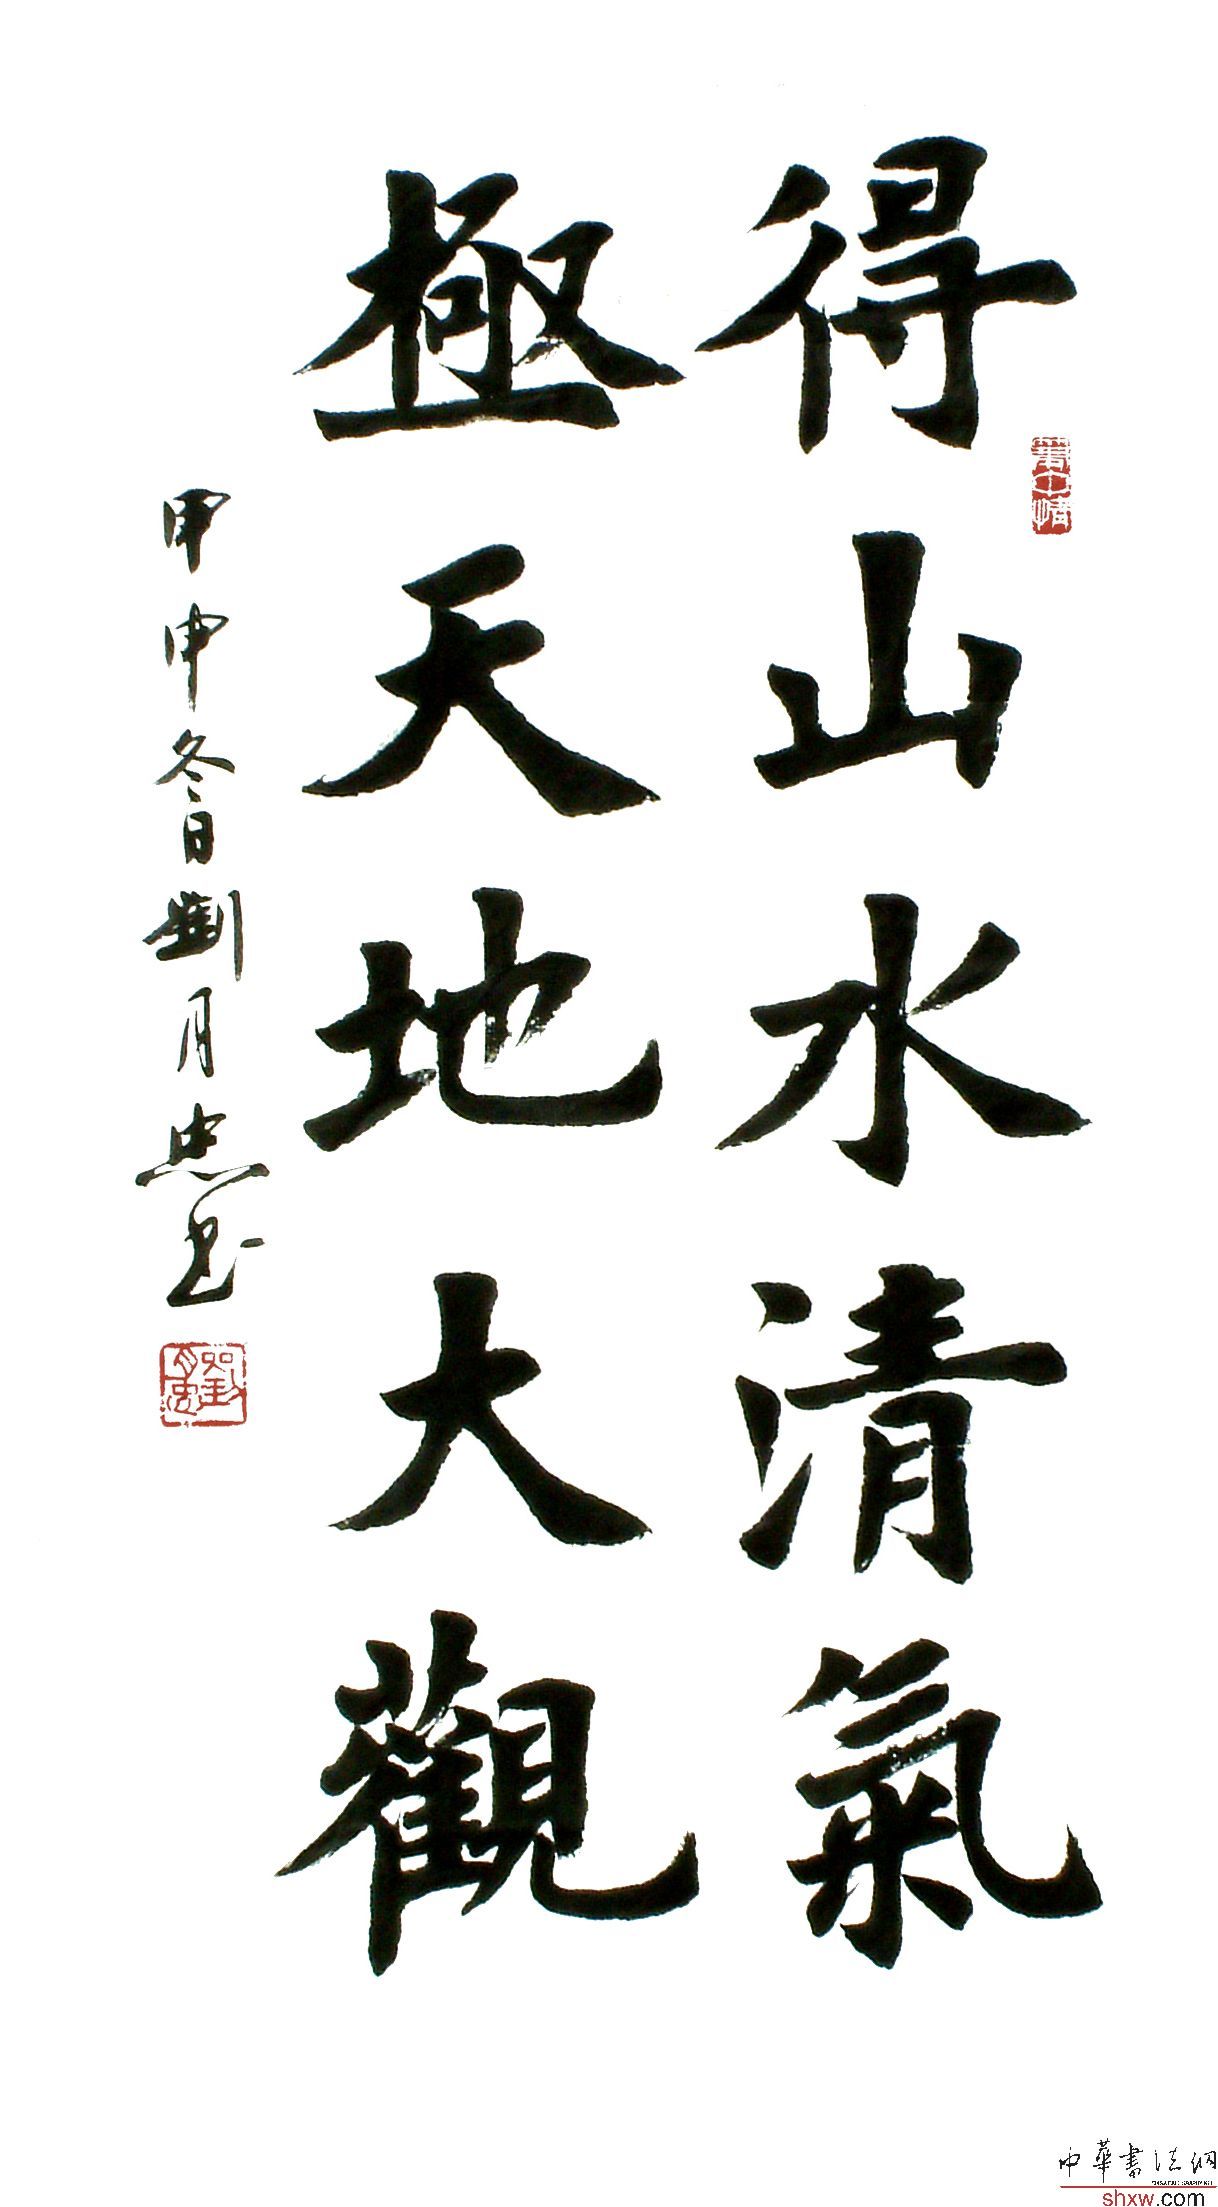 得山水清氣
極天地大觀
甲申冬日劉月忠书
中華書法網
shxw.com